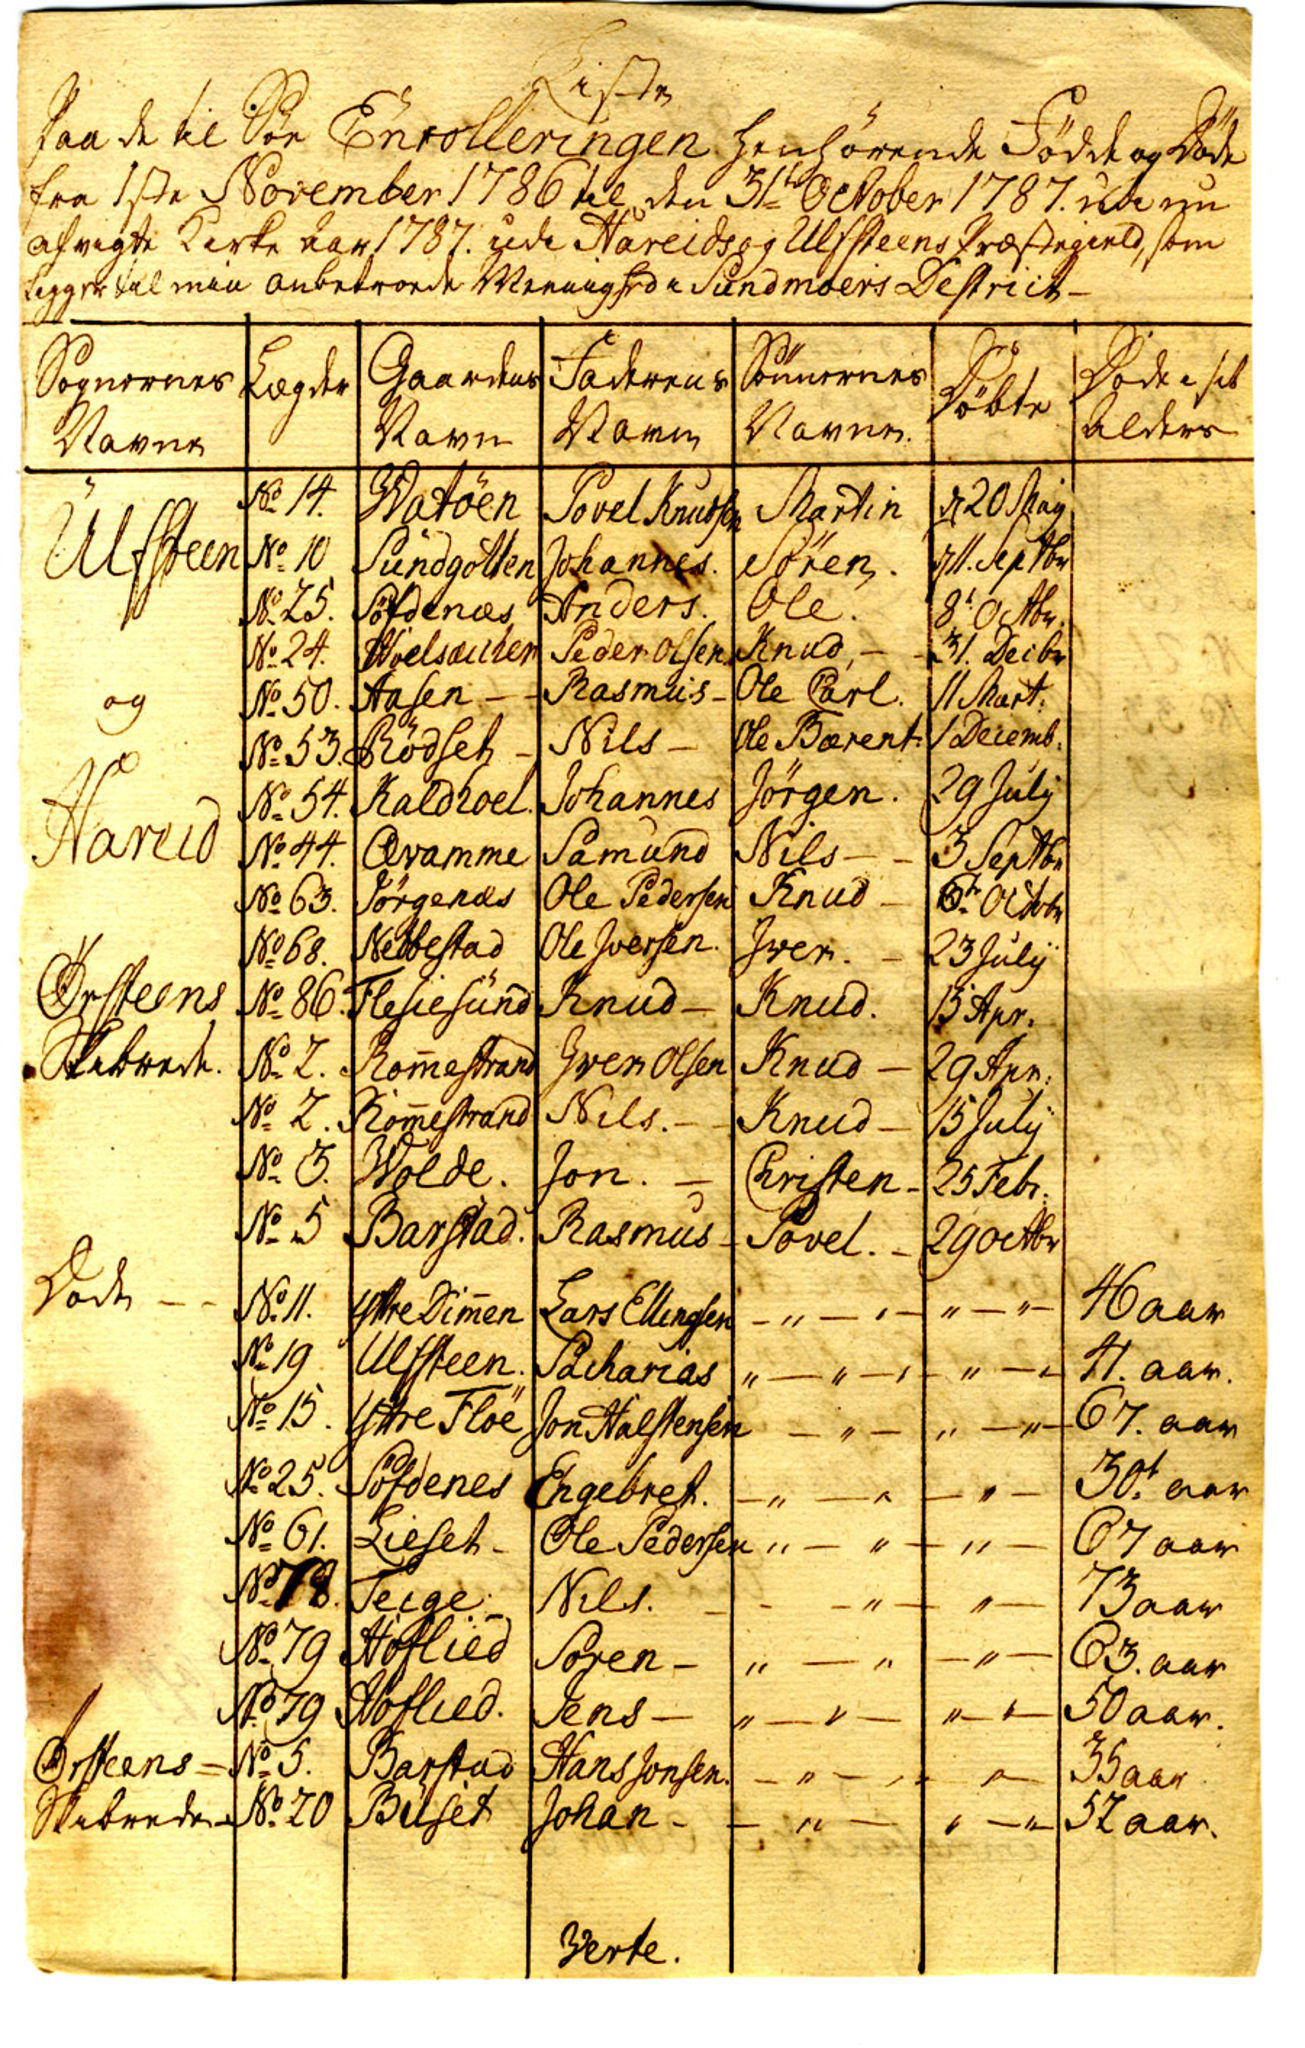 Liste
Paa de til Søe Enrolleringen henhörende Födde og Döde
fra 1ste November 1786 til den 31te October 1787. udi nu
afvigte Kirke Aar 1787. udi Hareids og Ulfsteens Præstegield, som
ligger til min anbetroede Menighed i Sundmoers District
Sognernes Navne Lægder Gaardens Navn Faderens Navn Sönnernes Navne. Döbte Döde i sit Alders
Ulfsteen No 14. Watöen Povel Knudsen Martin d 20 May
No 10 Sundgötten Johannes. Sören. d 11. Septbr
No 25. Söfdenæs Anders. Ole. 8t Octbr.
No 24. Peder Olsen Knud, - - 31. Decbr
og No 50. Aasen - - Rasmus - Ole Carl. 11 Mart:
No 53. Rödset - Nils - Ole Bærent. 1 Decemb.
Hareid No 54. Kaldhoel. Johannes Jörgen. 29 July
No 44. Qvamme Samund Nils - - 3 Septbr
No 63. Jörgenæs Ole Pedersen Knud - 6te Octobr
No 68. Nebbestad Ole Iversen. Iver. - 23 July
Ørsteens No 86. Flesiesund Knud - Knud. 15 Apr.
Skibrede. No 2. Rom̄estrand Iver Olsen Knud - 29 Apr.
No 2. Rom̄estrand Nils. - - Knud - 15 July
No 3. Wolde. Jon. - Christen - 25 Febr.
No 5 Barstad. Rasmus - Povel. - 29 Octbr
Döde - - No 11. Ytre Dim̄en Lars Ellingsen - " - " - " - " - 46 aar
No 19 Ulfsteen. Sacharias " - " - " - " - " 41. aar.
No 15. Ytre Flöe Jon Halstensen - " - " - " - 67. aar
No 25. Söfdenes Engebret. - " - " - " - 30t aar
No 61. Lieset - Ole Pedersen " - " - " - 67 aar
No 78. Teige Nils. - - - " - " - 73 aar
No 79 Hoflied Soren - " - " - " - 63. aar
No 79 Hoflied. Jens - " - " - " - " - 50 aar.
Ørsteens - No 5. Barstad Hans Jonsen. - " - " " - 35 aar
Skibrede - No 20 Buset Johan - - " - " - " 52 aar.
Verte.